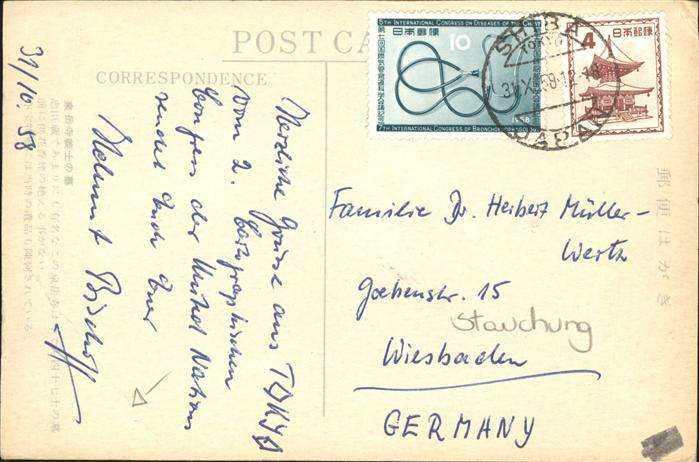 POST CA
CORRESPONDENCE
5TH INTERNATIONAL CONGRESS ON DISEASES OF THE CHEST
日本郵便
10
1958
7TH INTERNATIONAL CONGRESS OF BRONCHOESOPHAGOLOGY
日本郵便
4
SHIBA
TOKYO
31.X.58.12-18
JAPAN
郵便はがき
31/10.58
Herzliche Grüsse aus TOKYO
vom 2. kartographischen
Congress der United Nations
sendet Euch Euer
Helmut
Familie Dr. Herbert Müller-
Wertz
Goebenstr. 15
Stauchung
Wiesbaden
GERMANY